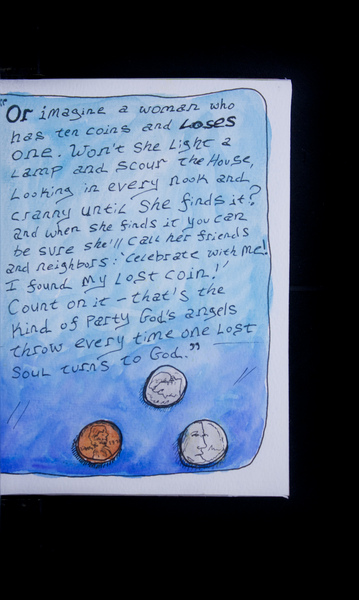 "Or imagine a woman who
has ten coins and Loses
one. Won't she Light a
Lamp and scour the House,
Looking in every nook and
cranny until she finds it?
and when she finds it you can
be sure she'll call her friends
and neighbors: 'Celebrate with me!
I found my Lost coin!'
Count on it – that's the
kind of Party God's angels
throw every time one Lost
soul turns to God."